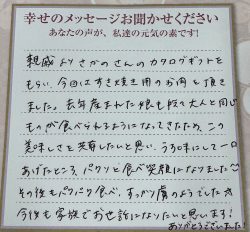 幸せのメッセージお聞かせください
あなたの声が、私達の元気の素です!
親戚よりさかのさんのカタログギフトを
もらい、今回はすき焼き用のお肉を頂き
ました。去年産まれた娘も段々大人と同じ
ものが食べられるようになってきたため、この
美味しさを共有したいと思い、うす切りにして一口
あげたところ、パクリと食べ笑顔になりました
その後もパクパク食べ、すっかり虜のようでした
今後も家族でお世話になりたいと思います!
ありがとうございました!